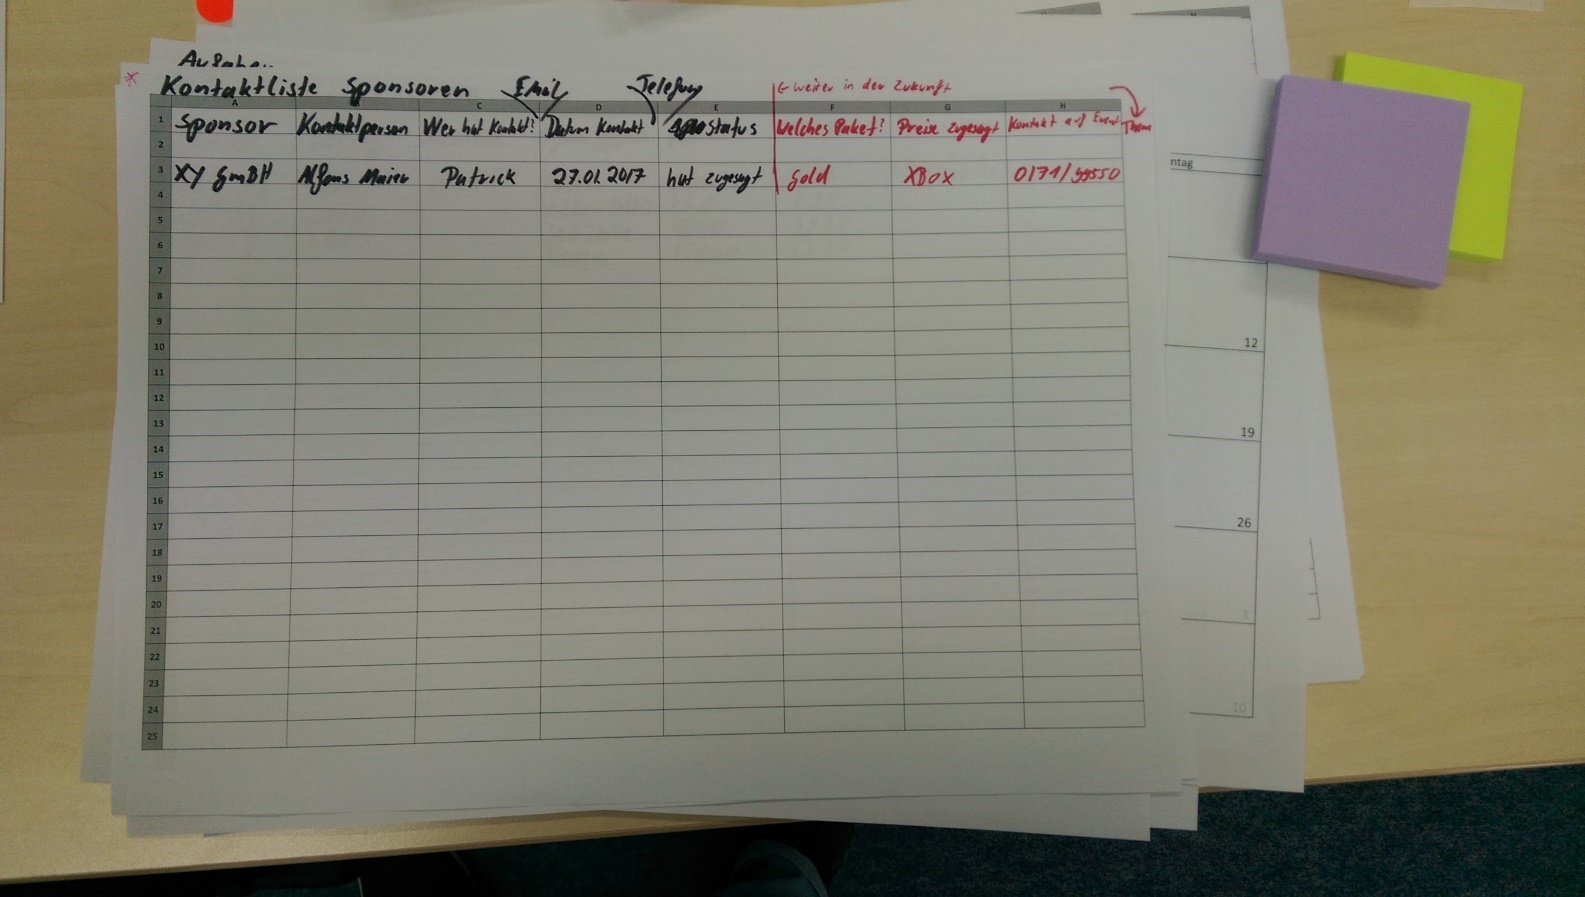 Aufgaben
* Kontaktliste Sponsoren EMail Telefon ← weiter in der Zukunft
A C D E F G H
1 Sponsor Kontaktperson Wer hat Kontakt? Datum Kontakt Status Welches Paket? Preise zugesagt Kontakt auf Event
2
3 XY GmBH Alfons Maier Patrick 27.01.2017 hat zugesagt Gold XBox
4
5
6
7
8
9
10
11
12
13
14
15
16
17
18
19
20
21
22
23
24
25
ntag
12
19
26
3
10